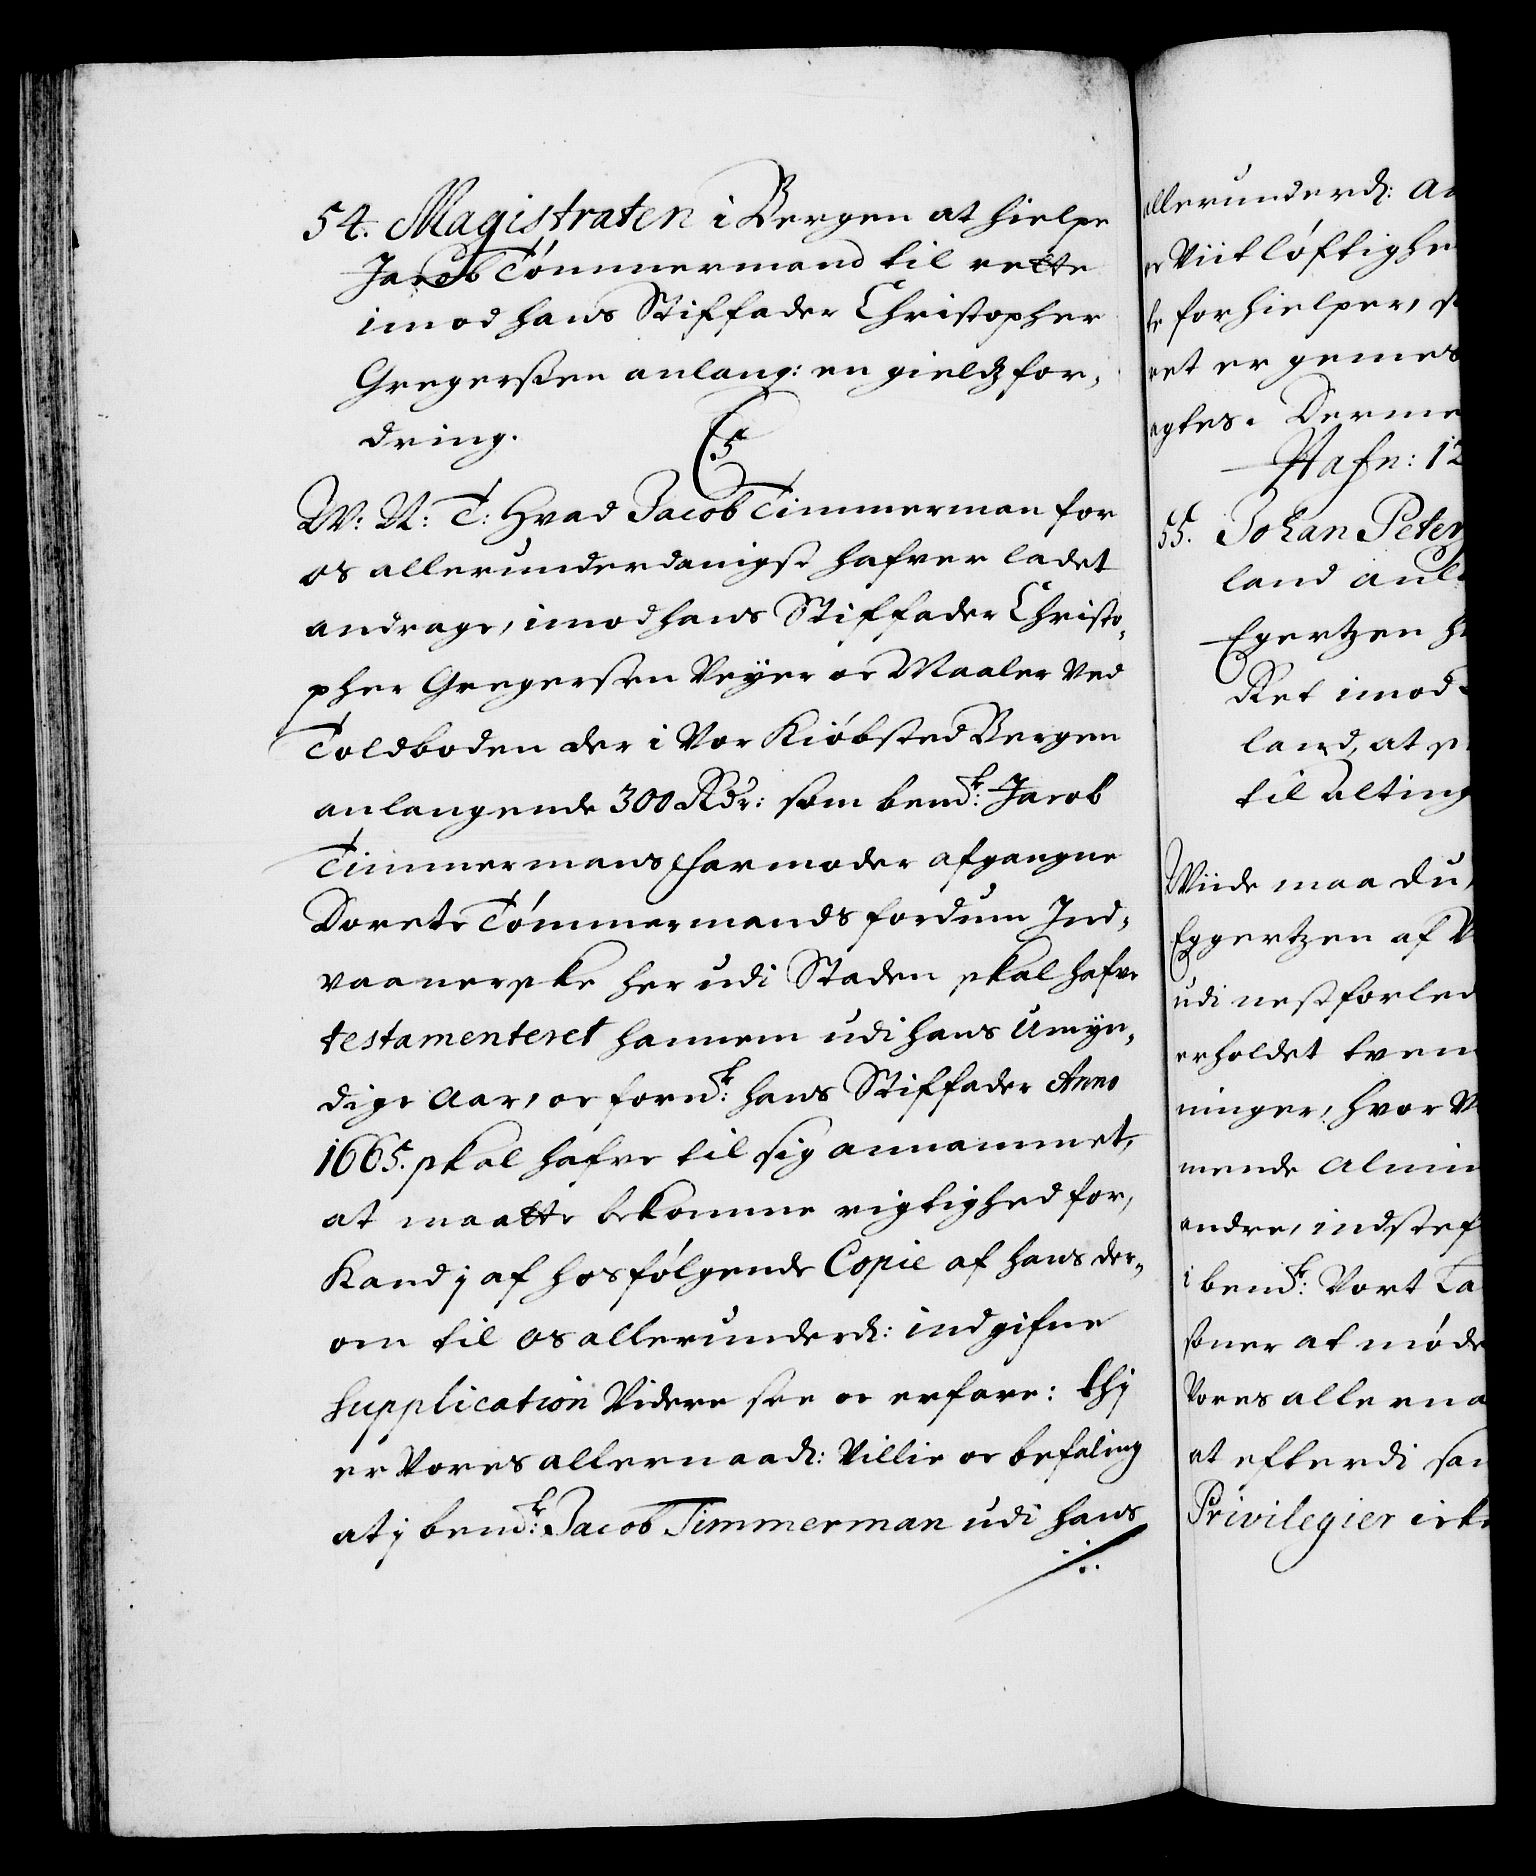 54. Magistraten i Bergen at hielpe
Jacob Tömmermand til rette
imod hans Stiffader Christopher
Gregersen anlang: en gieldz for,
dring.
C5
W: U: T: Hvad Jacob Timmerman for
os allerunderdanigst hafver ladet
andrage, imod hans Stiffader Christo,
pher Gregersen Veyer oc Maaler ved
Toldboden der i Vor Kiöbsted Bergen
anlangende 300 Rdr: som bemd.te: Jacob
Timmermans Farmoder afgangne
Dorete Tömmermands fordum Ind,
vaanerske her udi Staden skal hafve
testamenteret hannem udi hans Umyn,
dige Aar, oc forn.de: hans Stiffader Anno
1665. skal hafve til sig annammet,
at maatte bekomme rigtighed for,
Kand j af hosfølgende Copie af hans der,
om til os allerunderd: indgifne
Supplication Videre see oc erfare: thj
er Vores allernaad: Villie oc befaling
at j bemd.te: Jacob Timmerman udi hans
allerunderd: an
Viitløftighe
forhielper, s
ret er gemes
agtes. Derme
Hafn: 12
55. Johan Peter
land anl
Egertzen h
Ret imod
land, at s
til Alting
Wiide maa du,
Eggertzen af V
udi nest forled
erholdet tven
ninger, hvor V
mende Almin
andre, indstef
i bemd.te: Vort La
soner at møde
Vores allerna
at efterdi sam
Privilegier icke